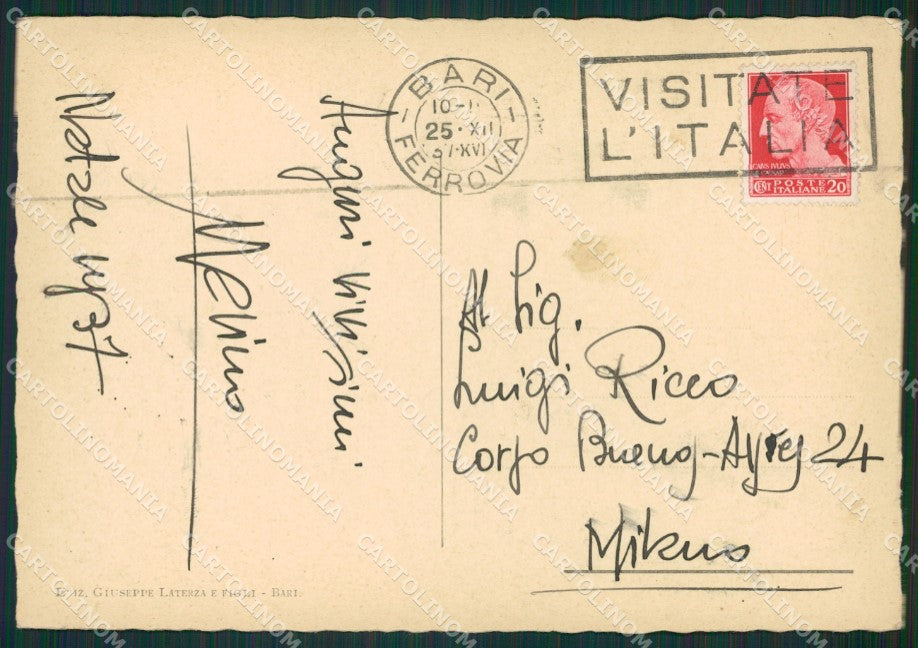 BARI
10-1
25·XII
37·XVI
FERROVIA
VISITATE
L'ITALIA
POSTE
ITALIANE
CENT 20
Auguri vivissimi
Natale 1937
Al Sig.
Luigi Ricco
Corso Buenos-Ayres 24
Milano
Ediz. GIUSEPPE LATERZA E FIGLI - BARI.
CARTOLINOMANIA